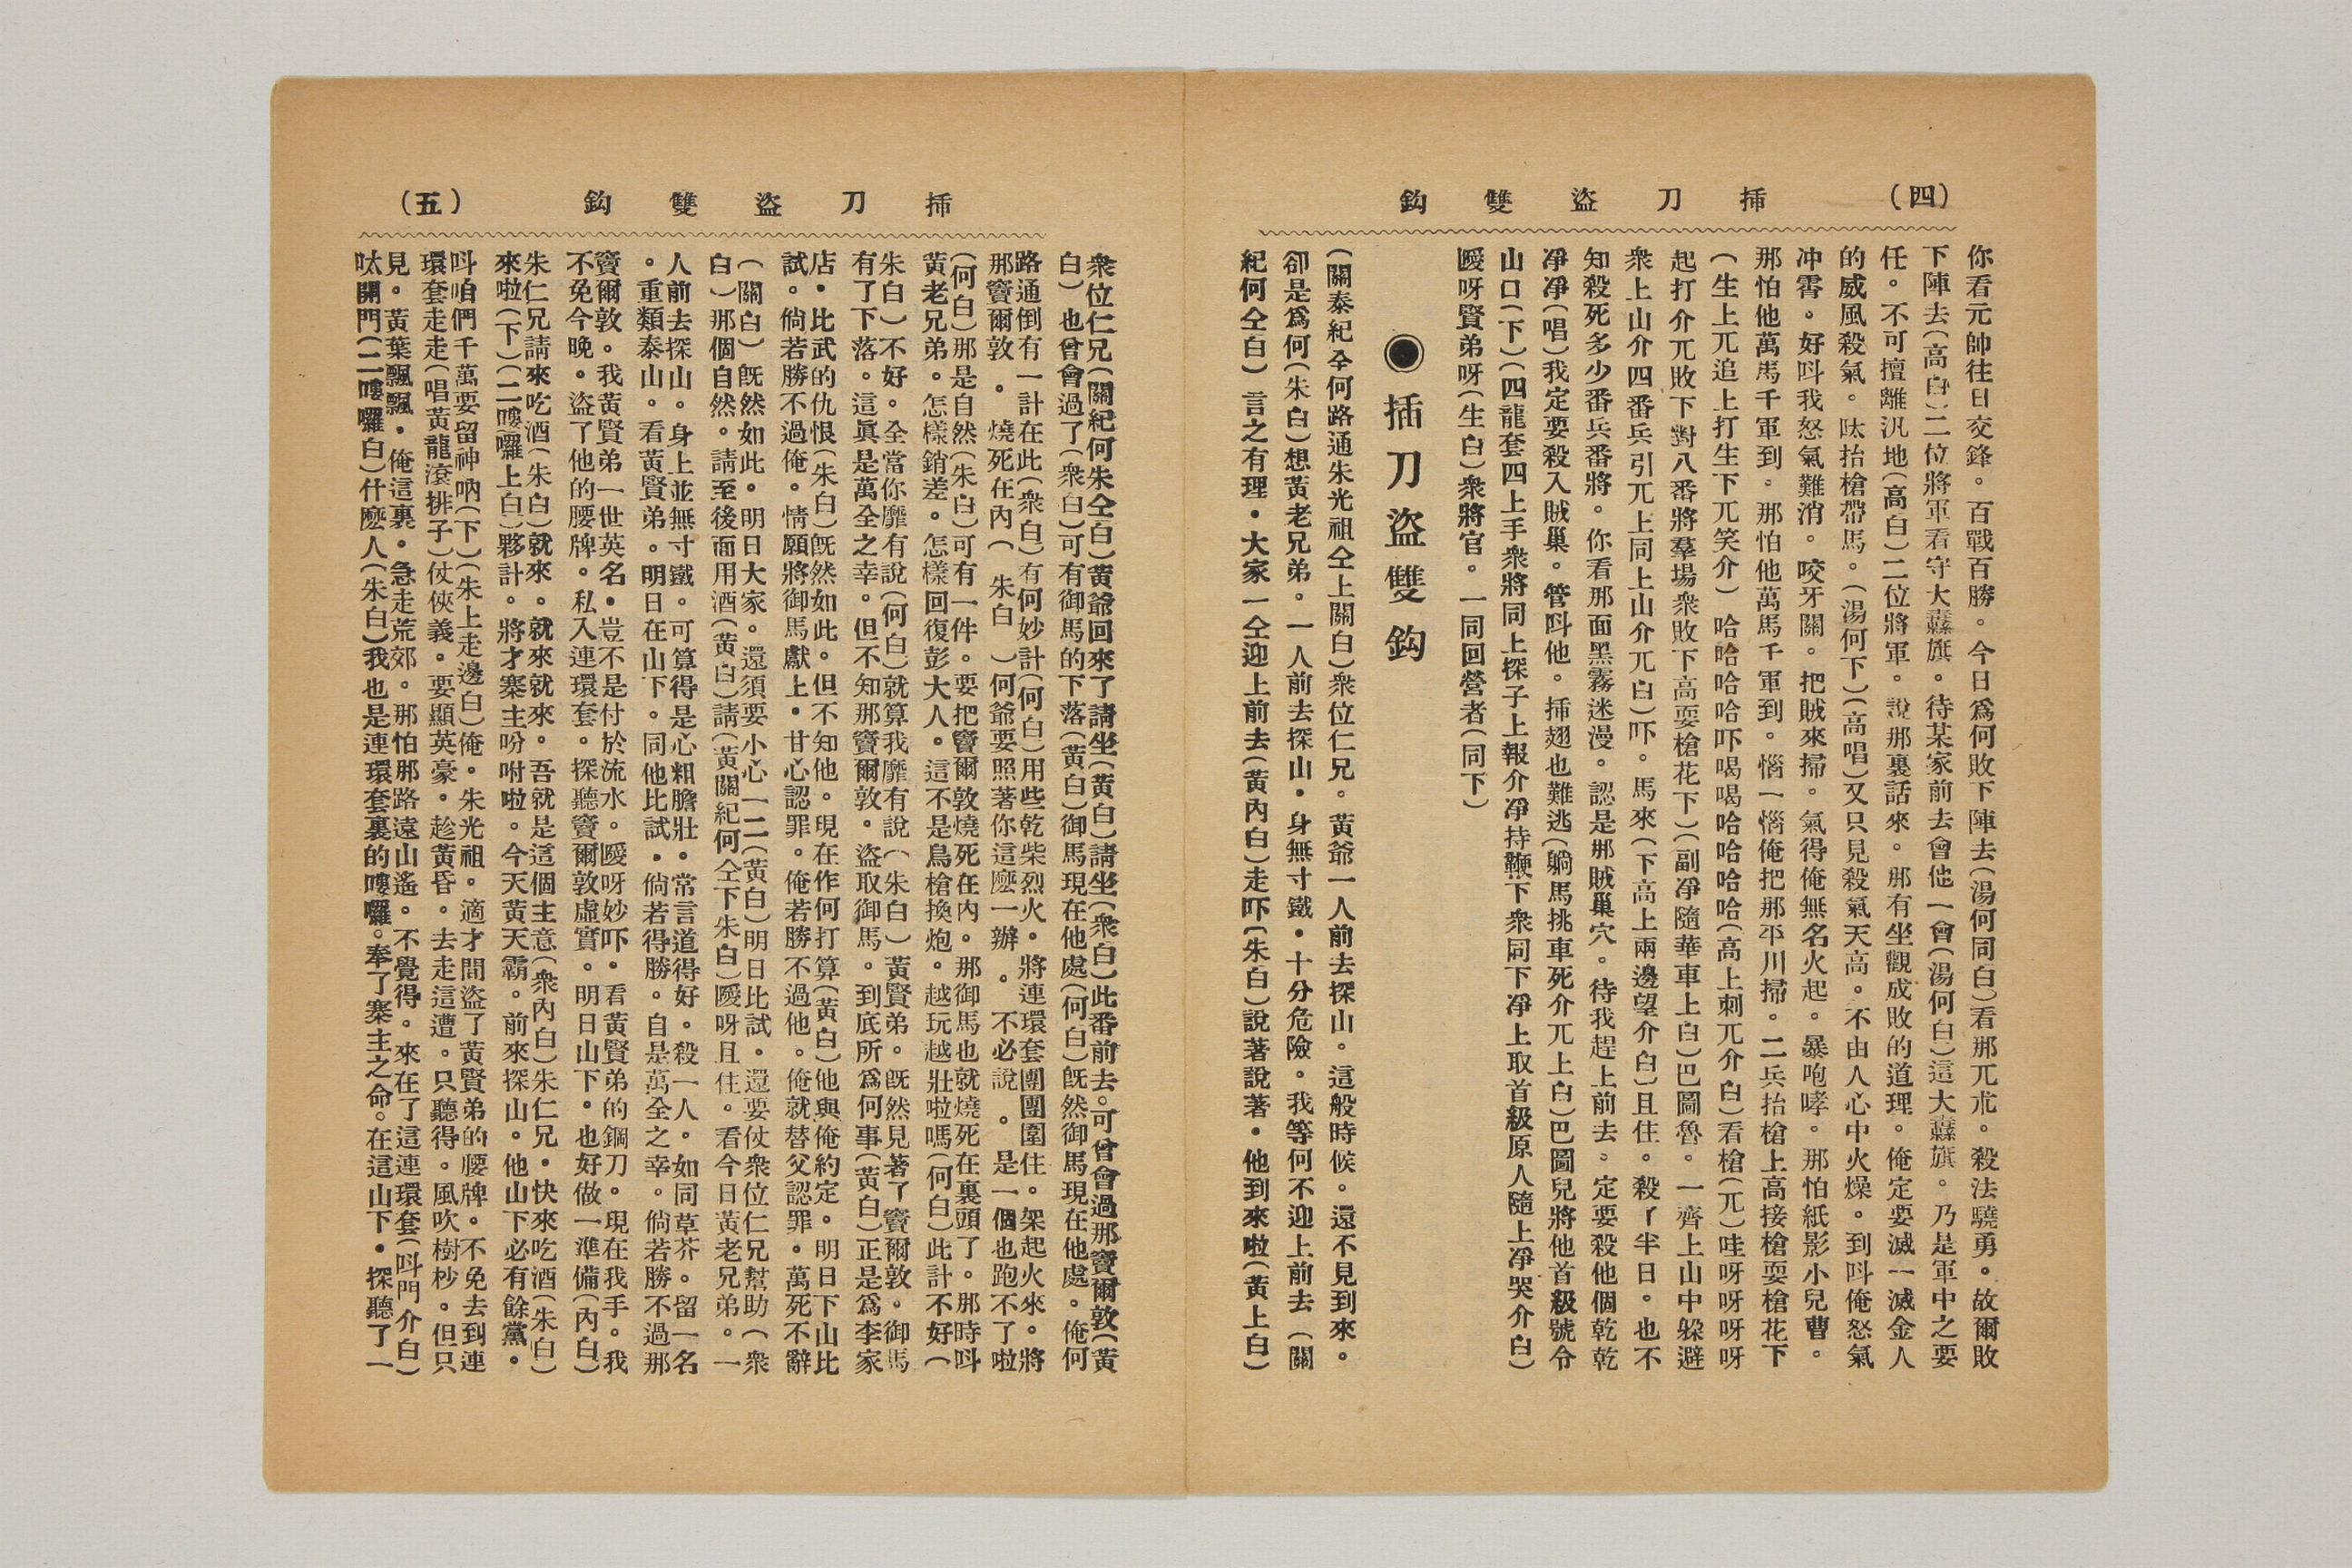 (四)
插刀盜雙鈎
你看元帥往日交鋒。百戰百勝。今日爲何敗下陣去(湯何同白)看那兀朮。殺法驍勇。故爾敗
下陣去(高白)二位將軍看守大纛旗。待某家前去會他一會(湯何白)這大纛旗。乃是軍中之要
任。不可擅離汛地(高白)二位將軍。說那裏話來。那有坐觀成敗的道理。俺定要滅一滅金人
的威風殺氣。呔抬槍帶馬。(湯何下)(高唱)又只見殺氣天高。不由人心中火燥。到呌俺怒氣
冲霄。好呌我怒氣難消。咬牙關。把賊來掃。氣得俺無名火起。暴咆哮。那怕紙影小兒曹。
那怕他萬馬千軍到。那怕他萬馬千軍到。惱一惱俺把那平川掃。二兵抬槍上高接槍耍槍花下
(生上兀追上打生下兀笑介)哈哈哈哈吓喝喝哈哈哈哈(高上刺兀介白)看槍(兀)哇呀呀呀呀
起打介兀敗下對八番將羣場衆敗下高耍槍花下)(副凈隨華車上白)巴圖魯。一齊上山中躱避
衆上山介四番兵引兀上同上山介兀白)吓。馬來(下高上兩邊望介白)且住。殺了半日。也不
知殺死多少番兵番將。你看那面黑霧迷漫。認是那賊巢穴。待我趕上前去。定要殺他個乾乾
凈凈(唱)我定要殺入賊巢。管呌他。揷翅也難逃(躺馬挑車死介兀上白)巴圖兒將他首級號令
山口(下)(四龍套四上手衆將同上探子上報介凈持鞭下衆同下凈上取首級原人隨上凈哭介白)
噯呀賢弟呀(生白)衆將官。一同回營者(同下)
◉插刀盜雙鈎
(關泰紀仝何路通朱光祖仝上關白)衆位仁兄。黃爺一人前去探山。這般時候。還不見到來。
卻是爲何(朱白)想黃老兄弟。一人前去探山。身無寸鐵。十分危險。我等何不迎上前去(關
紀何仝白)言之有理。大家一仝迎上前去(黃內白)走吓(朱白)說著說著。他到來啦(黃上白)
插刀盜雙鈎
(五)
衆位仁兄(關紀何朱仝白)黃爺回來了請坐(黃白)請坐(衆白)此番前去。可曾會過那竇爾敦(黃
白)也曾會過了(衆白)可有御馬的下落(黃白)御馬現在他處(何白)旣然御馬現在他處。俺何
路通倒有一計在此(衆白)有何妙計(何白)用些乾柴烈火。將連環套團團圍住。架起火來。將
那竇爾敦。燒死在內(朱白)何爺要照著你這麼一辦。不必說。是一個也跑不了啦
(何白)那是自然(朱白)可有一件。要把竇爾敦燒死在內。那御馬也就燒死在裏頭了。那時呌
黃老兄弟。怎樣銷差。怎樣回復彭大人。這不是鳥槍換炮。越玩越壯啦嗎(何白)此計不好(
朱白)不好。全當你靡有說(何白)就算我靡有說(朱白)黃賢弟。旣然見著了竇爾敦。御馬
有了下落。這眞是萬全之幸。但不知那竇爾敦。盜取御馬。到底所爲何事(黃白)正是爲李家
店。比武的仇恨(朱白)旣然如此。但不知他。現在作何打算(黃白)他與俺約定。明日下山比
試。倘若勝不過俺。情願將御馬獻上。甘心認罪。俺若勝不過他。俺就替父認罪。萬死不辭
(關白)旣然如此。明日大家。還須要小心一二(黃白)明日比試。還要仗衆位仁兄幫助(衆
白)那個自然。請至後面用酒(黃白)請(黃關紀何仝下朱白)噯呀且住。看今日黃老兄弟。一
人前去探山。身上並無寸鐵。可算得是心粗膽壯。常言道得好。殺一人。如同草芥。留一名
。重類泰山。看黃賢弟。明日在山下。同他比試。倘若得勝。自是萬全之幸。倘若勝不過那
竇爾敦。我黃賢弟一世英名。豈不是付於流水。噯呀妙吓。看黃賢弟的鋼刀。現在我手。我
不免今晚。盜了他的腰牌。私入連環套。探聽竇爾敦虛實。明日山下。也好做一準備(內白)
朱仁兄請來吃酒(朱白)就來。就來就來。吾就是這個主意(衆內白)朱仁兄。快來吃酒(朱白)
來啦(下)(二嘍囉上白)夥計。將才寨主吩咐啦。今天黃天霸。前來探山。他山下必有餘黨。
呌咱們千萬要留神吶(下)(朱上走邊白)俺。朱光祖。適才間盜了黃賢弟的腰牌。不免去到連
環套走走(唱黃龍滾排子)仗俠義。要顯英豪。趁黃昏。去走這遭。只聽得。風吹樹杪。但只
見。黃葉飄飄。俺這裏。急走荒郊。那怕那路遠山遙。不覺得。來在了這連環套(呌門介白)
呔開門(二嘍囉白)什麼人(朱白)我也是連環套裏的嘍囉。奉了寨主之命。在這山下。探聽了一